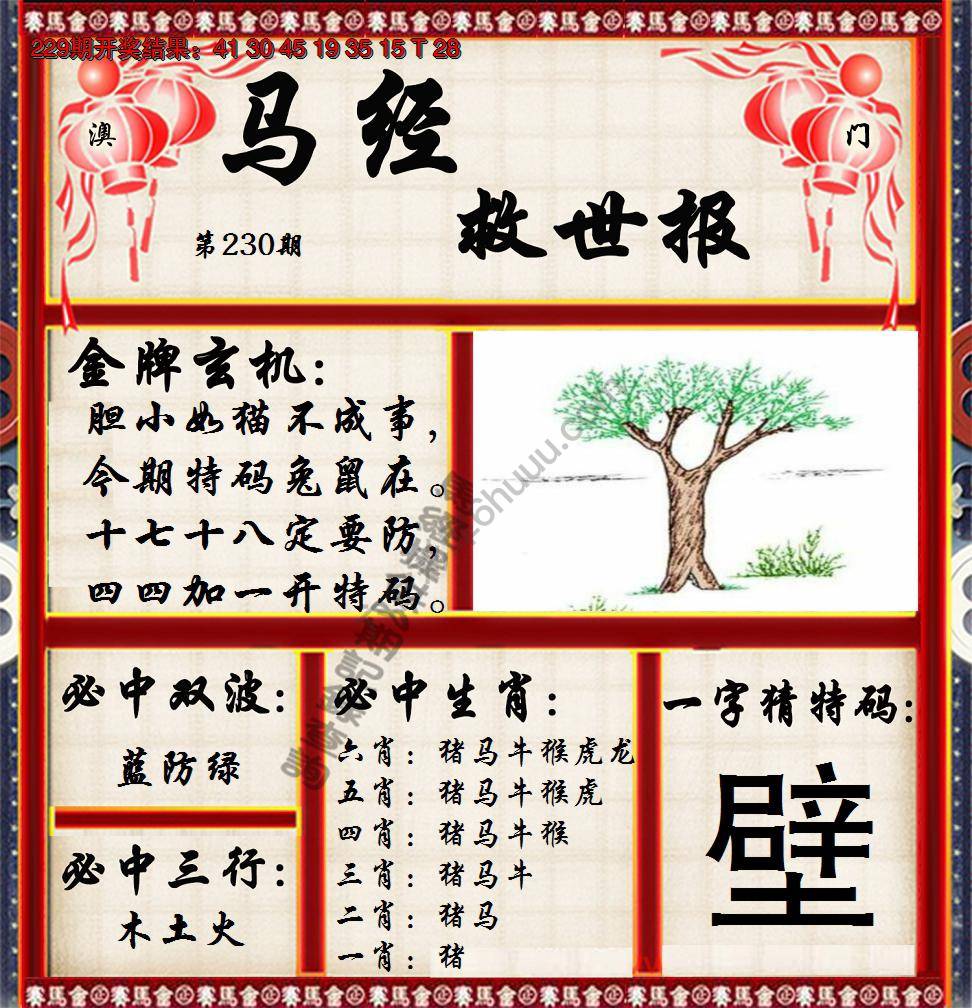 229期开奖结果：41 30 45 19 35 15 T 28
澳
门
马经
救世报
第230期
金牌玄机：
胆小如猫不成事，
今期特码兔鼠在。
十七十八定要防，
四四加一开特码。
必中双波：
蓝防绿
必中三行：
木土火
必中生肖：
六肖：猪马牛猴虎龙
五肖：猪马牛猴虎
四肖：猪马牛猴
三肖：猪马牛
二肖：猪马
一肖：猪
一字猜特码：
壁